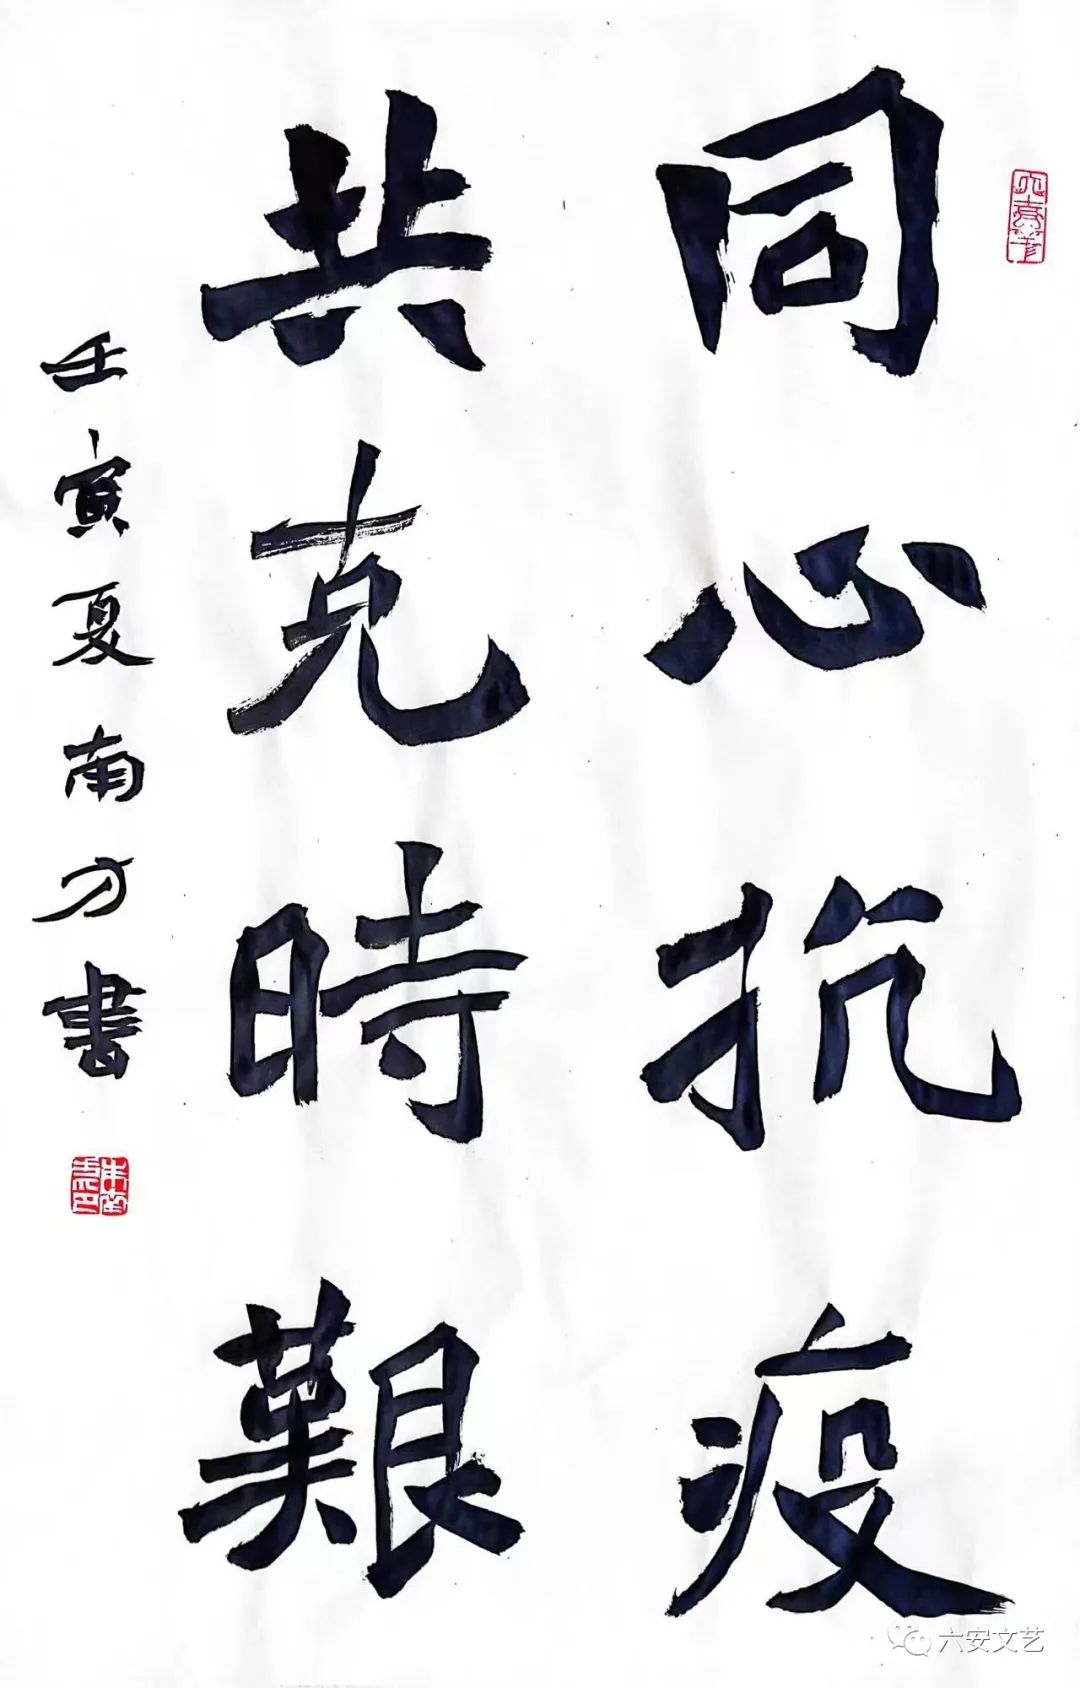 同心抗疫
共克時艱
壬寅夏南方書
六安文艺